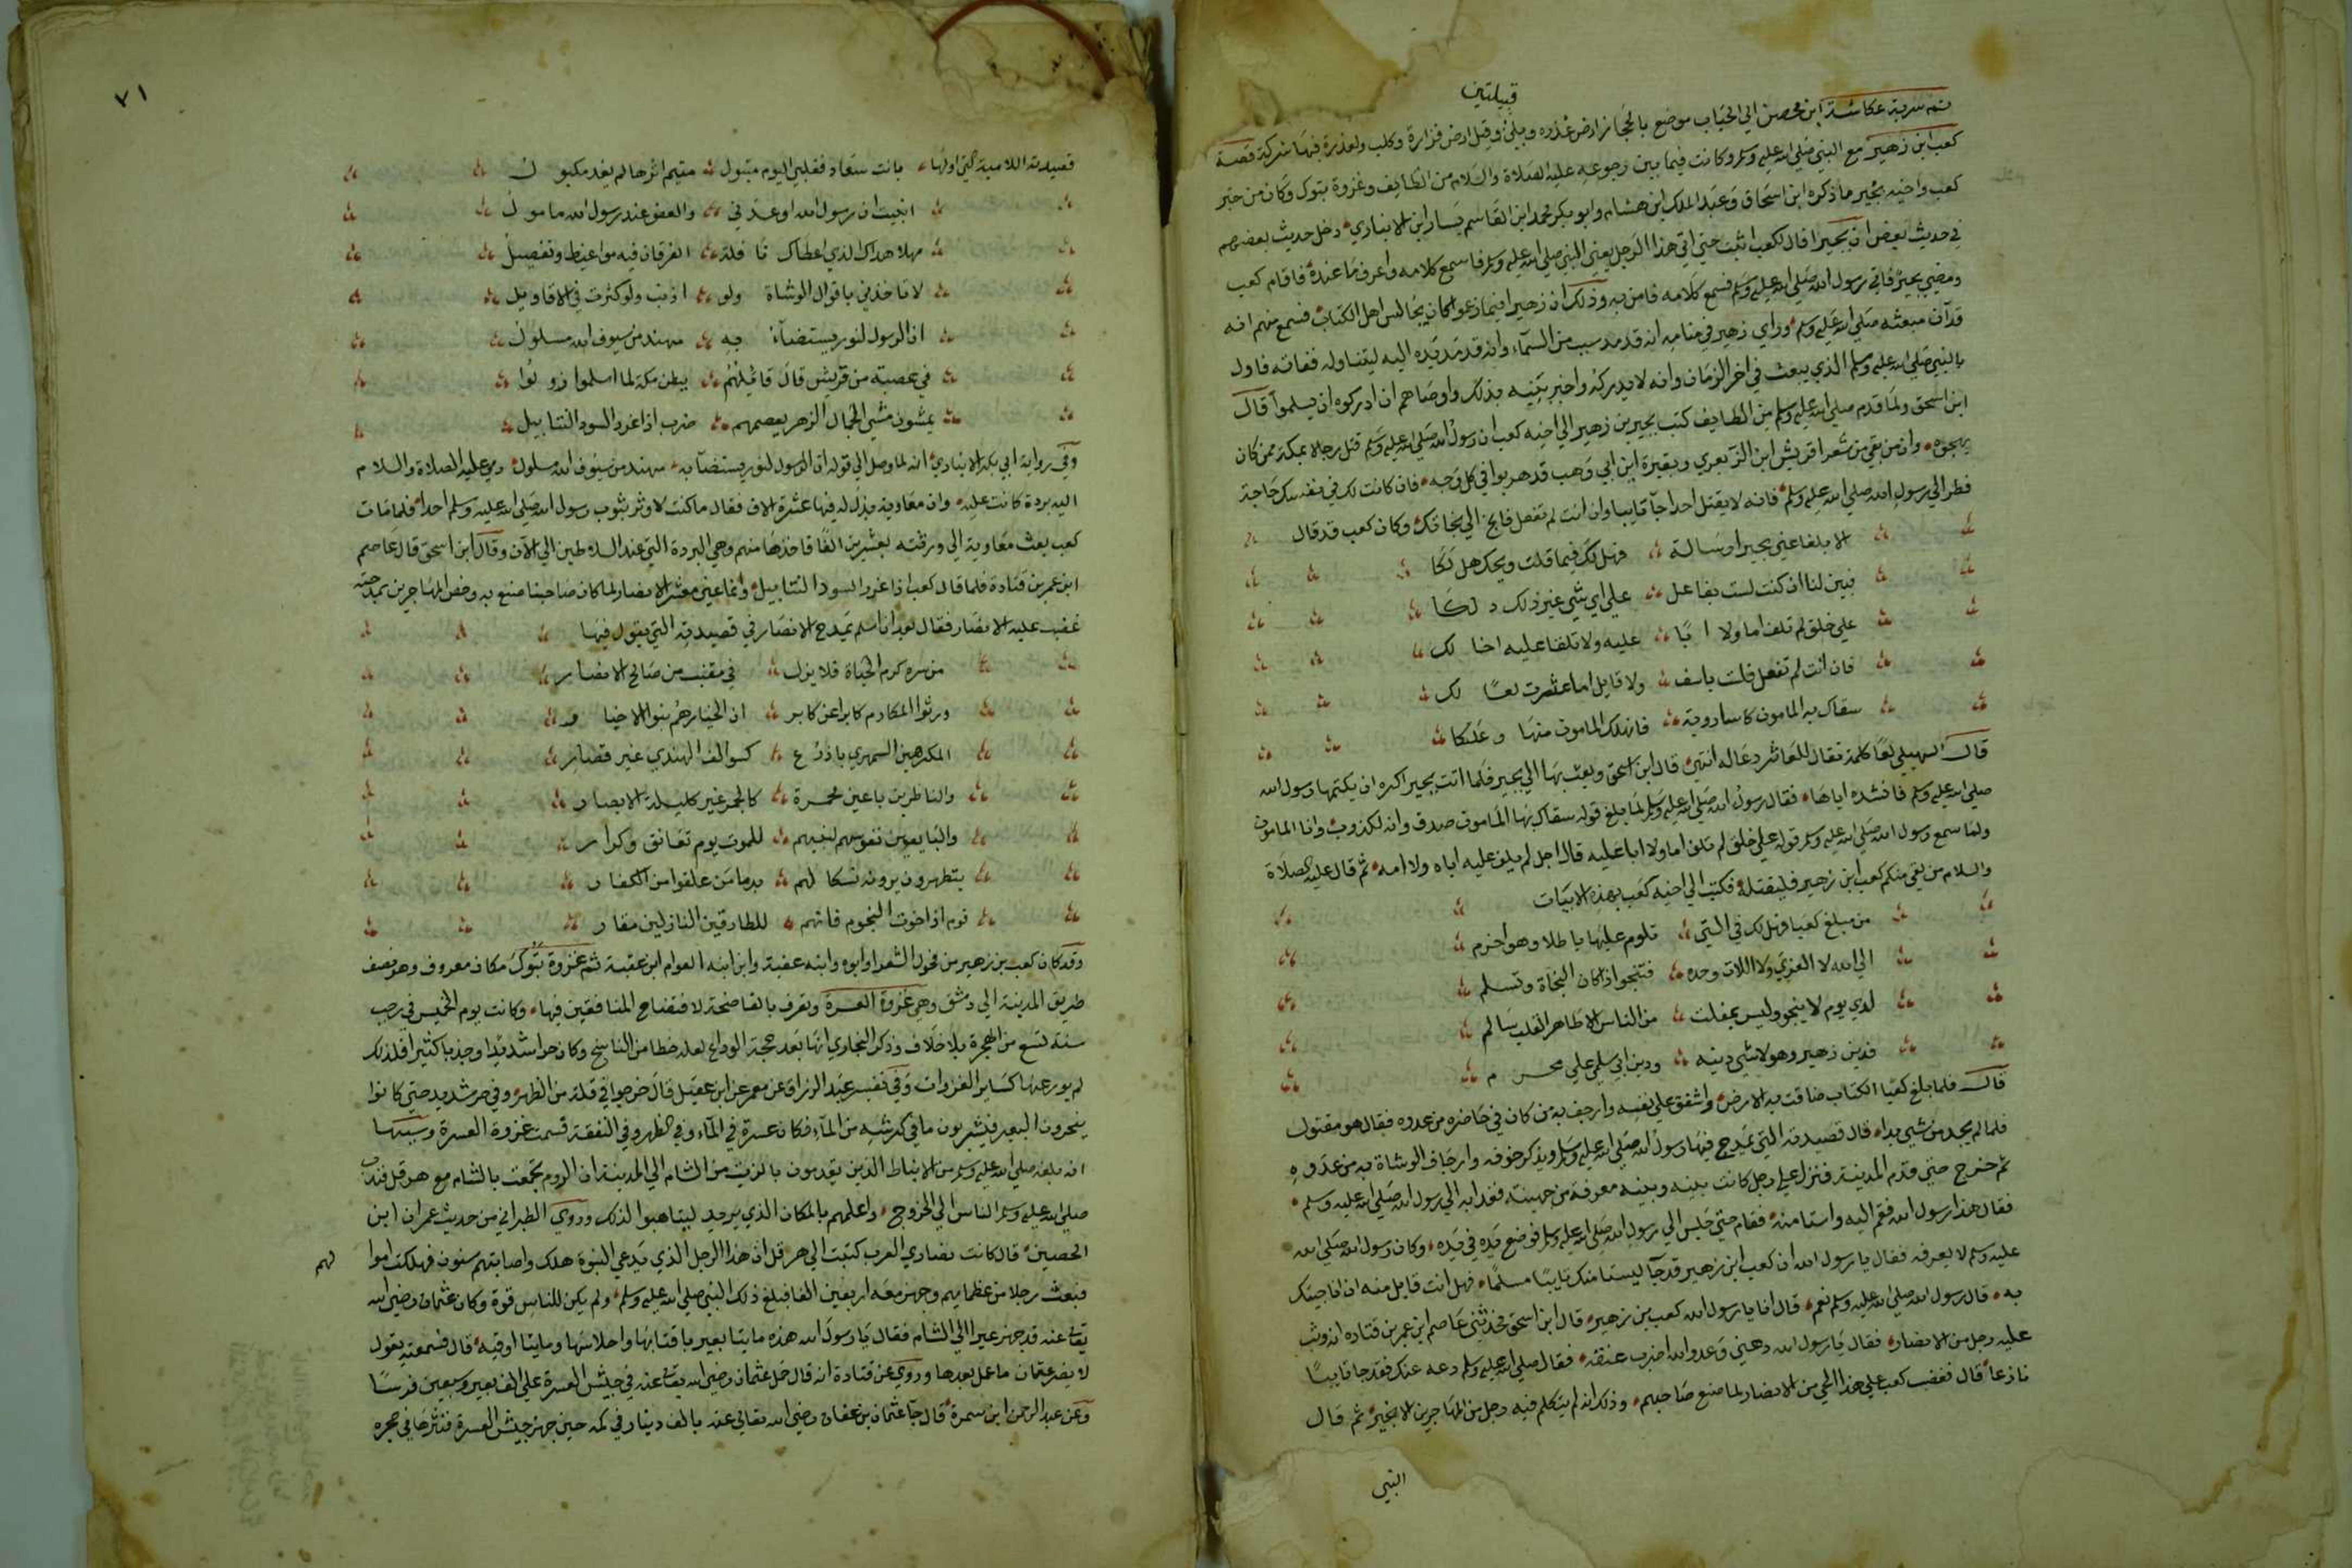 قبيلتين
ثم سرية عكاشة ابن محصن الي الجباب موضع بالحجاز ارض عذره وبلي وقيل ارض فزارة وكلب ولعذرة فيها شركة قصة
كعب ابن زهير مع النبي صلي الله عليه وسلم وكانت فيما بين رجوعه عليه الصلاة والسلام من الطايف وغزوة تبوك وكان من خبر
كعب واخيه بجير ما ذكره ابن اسحاق وعبد الملك ابن هشام وابو بكر محمد ابن القاسم بشار ابن الانباري دخل حديث بعضهم
في حديث بعض ان بجيرا قال لكعب اثبت حتي اتي هذا الرجل يعني النبي صلي الله عليه وسلم فاسمع كلامه واعرف ما عنده فاقام كعب
ومضي بجير فاتي رسول الله صلي الله عليه وسلم فسمع كلامه فامن به وذلك ان زهيرا فيما زعموا كان يجالس اهل الكتاب فسمع منهم انه
قد آن مبعثه صلي الله عليه وسلم وراي زهير في منامه انه قد مد سبب من السماء وانه قد مد يده اليه ليتناوله ففاته فاول
بالنبي صلي الله عليه وسلم الذي يبعث في اخر الزمان وانه لا يدركه واخبر بنيه بذلك واوصاهم ان ادركوه ان يسلموا قال
ابن اسحق ولما قدم صلي الله عليه وسلم من الطايف كتب بجير بن زهير الي اخيه كعب ان رسول الله صلي الله عليه وسلم قتل رجالا بمكة ممن كان
يهجوه وان من بقي من شعرا قريش ابن الزبعري وهبيرة ابن ابي وهب قد هربوا في كل وجه فان كانت لك في نفسك حاجة
فطر الي رسول الله صلي الله عليه وسلم فانه لا يقتل احدا جآ تايبا وان انت لم تفعل فانج الي نجاتك وكان كعب قد قال
الا بلغا عني بجيرا رسالة فهل لك فيما قلت ويحك هل لكا
فبين لنا ان كنت لست بفاعل علي اي شي غير ذلك دلكا
علي خلق لم تلف اما ولا ابا عليه ولا تلفا عليه اخا لك
فان انت لم تفعل فلست باسف ولا قايل اما عثرت لعا لك
سقاك به المامون كاسا روية فانهلك المامون منها وعلكا
قال السهيلي لعا كلمة تقال للعاثر دعا له انتهي قال ابن اسحق وبعث بها الي بجير فلما اتت بجيرا كره ان يكتمها رسول الله
صلي الله عليه وسلم فانشده اياها فقال رسول الله صلي الله عليه وسلم لما بلغ قوله سقاك بها المامون صدق وانه لكذوب وانا المامون
ولما سمع رسول الله صلي الله عليه وسلم قوله علي خلق لم تلف اما ولا ابا عليه قال اجل لم يلف عليه اباه ولا امه ثم قال عليه الصلاة
والسلام من لقي منكم كعب ابن زهير فليقتله فكتب الي اخيه كعب بهذه الابيات
من مبلغ كعبا فهل لك في التي تلوم عليها باطلا وهو احزم
الي الله لا العزي ولا اللات وحده فتنجوا اذا كان النجاة وتسلم
لدي يوم لا ينجو وليس بمفلت من الناس الا طاهر القلب سالم
فدين زهير وهو لا شي دينه ودين ابي سلمي علي محرم
قال فلما بلغ كعبا الكتاب ضاقت به الارض واشفق علي نفسه وارجف به من كان في حاضره من عدوه فقال هو مقتول
فلما لم يجد من شيي بدا قال قصيدته التي يمدح فيها رسول الله صلي الله عليه وسلم ويذكر خوفه وارجاف الوشاة به من عدوه
ثم خرج حتي قدم المدينة فنزل علي رجل كانت بينه وبينه معرفة من جهينة فغدا به الي رسول الله صلي الله عليه وسلم
فقال هذا رسول الله فقم اليه واستامنه فقام حتي جلس الي رسول الله صلي الله عليه وسلم فوضع يده في يده وكان رسول الله صلي الله
عليه وسلم لا يعرفه فقال يا رسول الله ان كعب ابن زهير قد جآ ليستامنك تايبا مسلما فهل انت قابل منه ان انا جيتك
به قال رسول الله صلي الله عليه وسلم نعم قال انا يا رسول الله كعب بن زهير قال ابن اسحق فحدثني عاصم ابن عمر بن قتاده انه وثب
عليه رجل من الانصار فقال يا رسول الله دعني وعدو الله اضرب عنقه فقال صلي الله عليه وسلم دعه عنك فقد جا تايبا
نازعا قال فغضب كعب علي هذا الحي من الانصار لما صنع صاحبهم وذلك انه لم يتكلم فيه رجل من المهاجرين الا بخير ثم قال
النبي
٧١
قصيدته اللامية التي اولها بانت سعاد فقلبي اليوم متبول متيم اثرها لم يفد مكبول
انبيت ان رسول الله اوعدني والعفو عند رسول الله مامول
مهلا هداك الذي اعطاك نافلة الفرقان فيه مواعيظ وتفصيل
لا تاخذني باقوال الوشاة ولو اذنب ولو كثرت في الاقاويل
ان الرسول لنور يستضآء به مهند من سيوف الله مسلول
في عصبة من قريش قال قايلهم ببطن مكة لما اسلموا زولوا
يمشون مشي الجمال الزهر يعصمهم ضرب اذا غرد السود التنابيل
وفي رواية ابي بكر الانباري انه لما وصل الي قوله ان الرسول لنور يستضآ به مهند من سيوف الله مسلول رمي عليه الصلاة والسلام
اليه بردة كانت عليه وان معاوية بذل له فيها عشرة الاف فقال ما كنت لاوثر بثوب رسول الله صلي الله عليه وسلم احدا فلما مات
كعب بعث معاوية الي ورثته بعشرين الفا فاخذها منهم وهي البردة التي عند السلاطين الي الآن وقال ابن اسحق قال عاصم
ابن عمر بن قتادة فلما قال كعب اذا غرد السود التنابيل وانما عني معشر الانصار لما كان صاحبنا صنع به وخص المهاجرين بمدحته
غضب عليه الانصار فقال بعد ان اسلم يمدح الانصار في قصيدته التي يقول فيها
من سره كرم الحياة فلا يزل في مقنب من صالح الانصار
ورثوا المكارم كابرا عن كابر ان الخيار هم بنوا الاخيار
المكرهين السمهري باذرع كسوالف الهندي غير قصار
والناظرين باعين محمرة كالجمر غير كليلة الابصار
والبايعين نفوسهم لنبيهم للموت يوم تعانق وكرار
يتطهرون يرونه نسكا لهم بدما من علقوا من الكفار
قوم اذا خوت النجوم فانهم للطارقين النازلين مقار
وقد كان كعب بن زهير من فحول الشعرا وابوه وابنه عقبة وابن ابنه العوام ابن عقبة ثم غزوة تبوك مكان معروف وهو نصف
طريق المدينة الي دمشق وهي غزوة العسرة وتعرف بالفاضحة لافتضاح المنافقين فيها وكانت يوم الخميس في رجب
سنة تسع من الهجرة بلا خلاف وذكر البخاري انها بعد حجة الوداع لعله خطا من الناسخ وكان حرا شديدا وجدبا كثيرا فلذلك
لم يور عنها كساير الغزوات وفي تفسير عبد الرزاق عن معمر عن ابن عقيل قال خرجوا في قلة من الظهر وفي حر شديد حتي كانوا
ينحرون البعير فيشربون ما في كرشه من المآء فكان عسرة في المآء وفي الظهر وفي النفقة فسميت غزوة العسرة وسببها
انه بلغه صلي الله عليه وسلم من الانباط الذين يقدمون بالزيت من الشام الي المدينة ان الروم تجمعت بالشام مع هرقل فندب
صلي الله عليه وسلم الناس الي الخروج واعلمهم بالمكان الذي يريد ليتاهبوا لذلك وروي الطبراني من حديث عمران ابن
الحصين قال كانت نصاري العرب كتبت الي هرقل ان هذا الرجل الذي يدعي النبوة هلك واصابتهم سنون فهلكت اموا
لهم
فبعث رجلا من عظمايهم وجهز معه اربعين الفا فبلغ ذلك النبي صلي الله عليه وسلم ولم يكن للناس قوة وكان عثمان رضي الله
تعالي عنه قد جهز عيرا الي الشام فقال يا رسول الله هذه مايتا بعير باقتابها واحلاسها ومايتا اوقية قال فسمعته يقول
لا يضر عثمان ما عمل بعدها وروي عن قتادة انه قال حمل عثمان رضي الله تعالي عنه في جيش العسرة علي الف بعير وسبعين فرسا
وعن عبد الرحمن ابن سمرة قال جآ عثمان بن عفان رضي الله تعالي عنه بالف دينار في كمه حين جهز جيش العسرة فنثرها في حجره